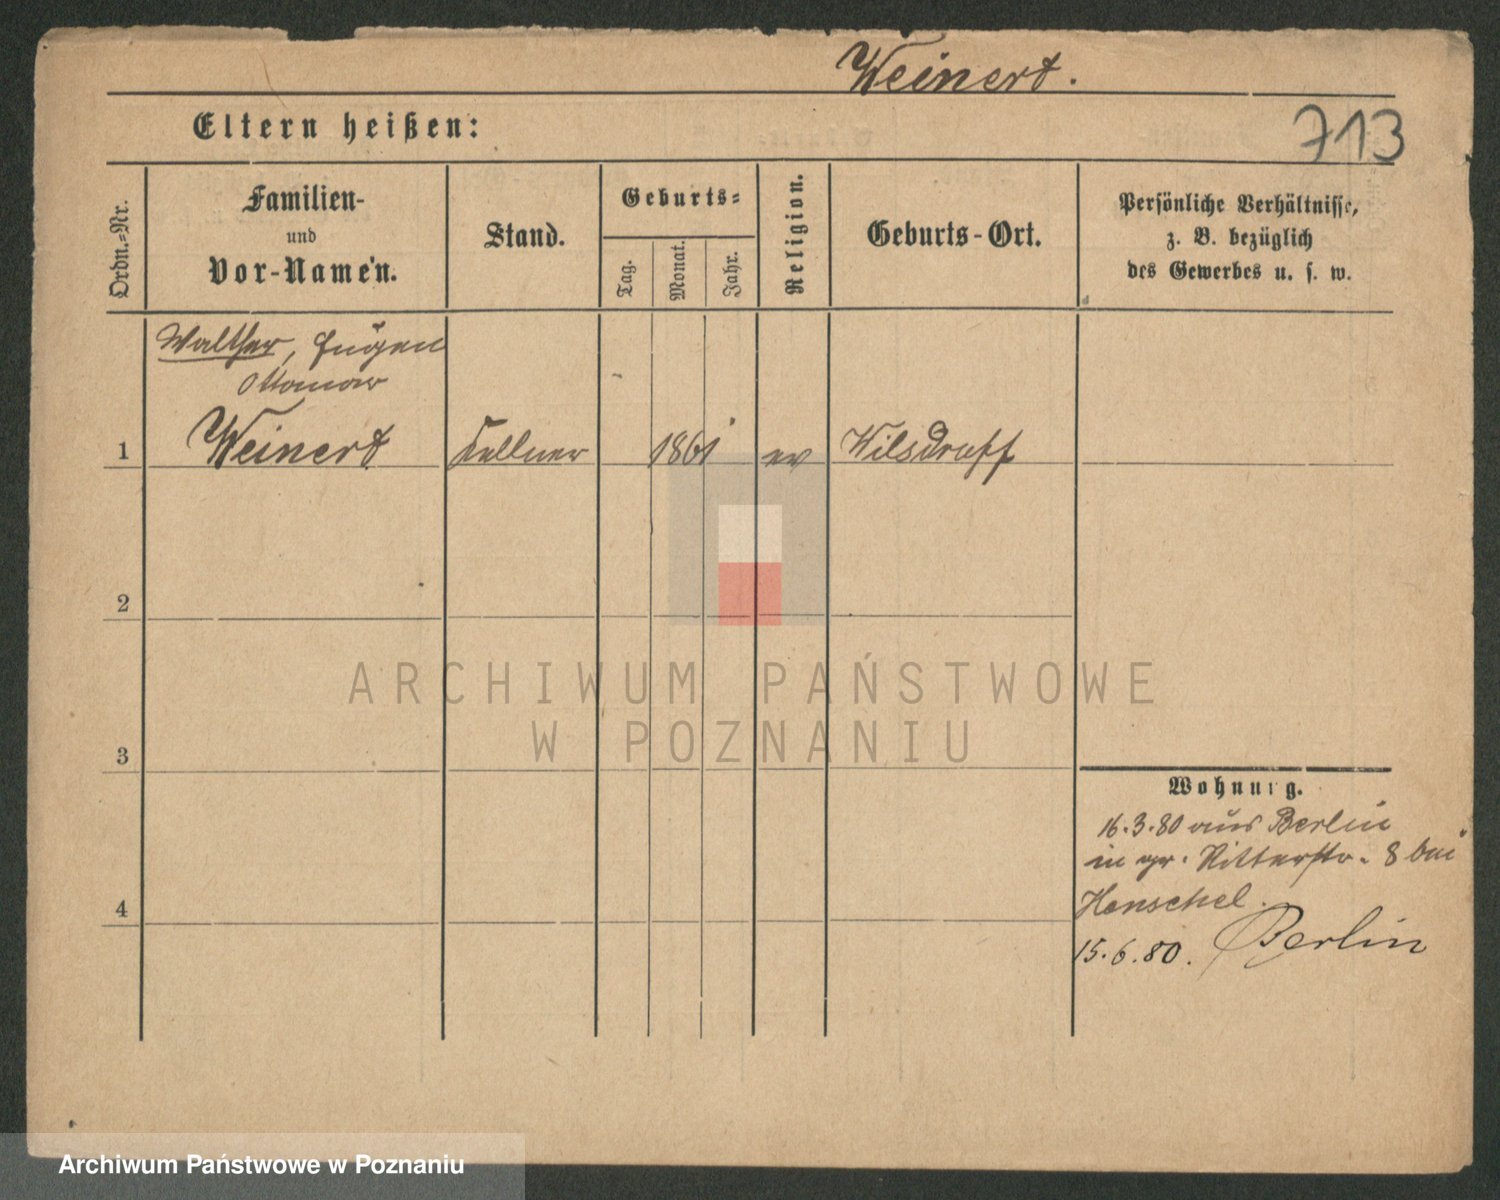 Weinert.
713
Eltern heißen:
Ordn.=Nr.
Familien-
und
Vor-Namen.
Stand.
Geburts=
Tag.
Monat.
Jahr.
Religion.
Geburts-Ort.
Persönliche Verhältnisse,
z. B. bezüglich
des Gewerbes u. s. w.
Walther, Eugen
Ottomar
1 Weinert Kellner 1861 ev Wilsdruff
2
3
4
ARCHIWUM PAŃSTWOWE
W POZNANIU
Wohnung.
16.3.80 aus Berlin
in gr. Ritterstr. 8 bei
Henschel.
15.6.80. Berlin
Archiwum Państwowe w Poznaniu